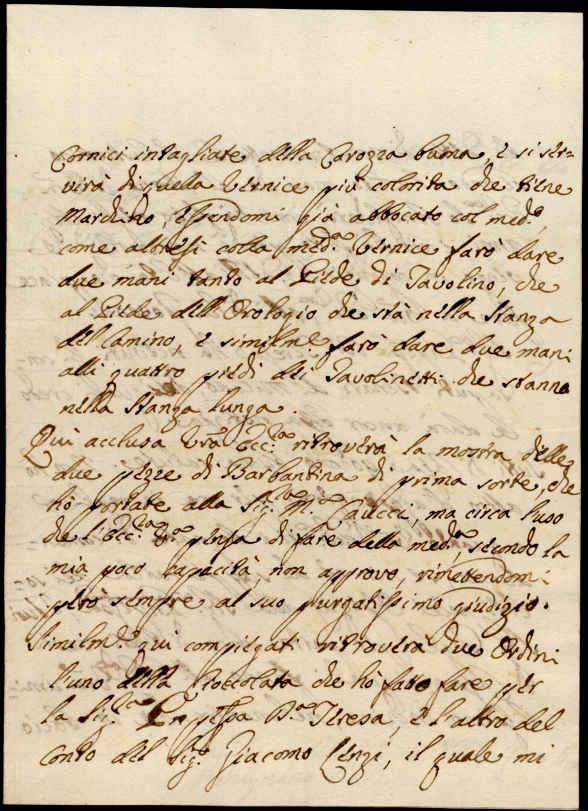 Cornici intagliate della Carozza buona, e si ser=
virà di quella Vernice più colorita che tiene
Marchino, essendomi già abboccato col med.º
come altresì colla med.ª Vernice farò dare
due mani tanto al Piede di Tavolino, che
al Piede dell'Orologio che stà nella Stanza
del Camino, e similm.e farò dare due mani
alli quattro piedi dei Tavolinetti che stanno
nella Stanza lunga.
Qui acclusa V.ra Ecc.za ritroverà la mostra delle
due pezze di Barbantina di prima sorte, che
hò portate alla Sig.ra M.a Caucci, ma circa l'uso
che l'Ecc.za V.ra pensa di fare della med.ª, secondo la
mia poca capacità, non approvo, rimettendomi
però sempre al suo purgatissimo giudizio.
Similm.e qui compiegati ritroverà due Ordini
l'uno della Cioccolata che hò fatto fare per
la Sig.ra D.a Teresa, e l'altro del
Conto del Sig.r Giacomo Lenzi, il quale mi